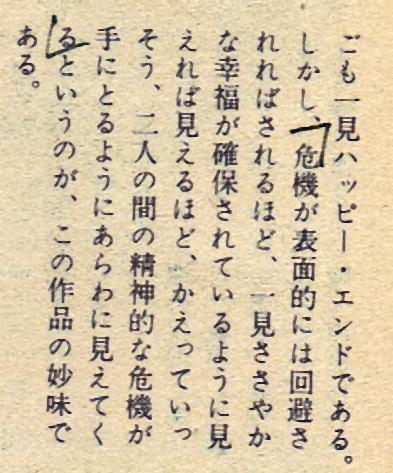 ごも一見ハッピー・エンドである。
しかし、危機が表面的には回避さ
れればされるほど、一見ささやか
な幸福が確保されているように見
えれば見えるほど、かえっていっ
そう、二人の間の精神的な危機が
手にとるようにあらわに見えてく
るというのが、この作品の妙味で
ある。